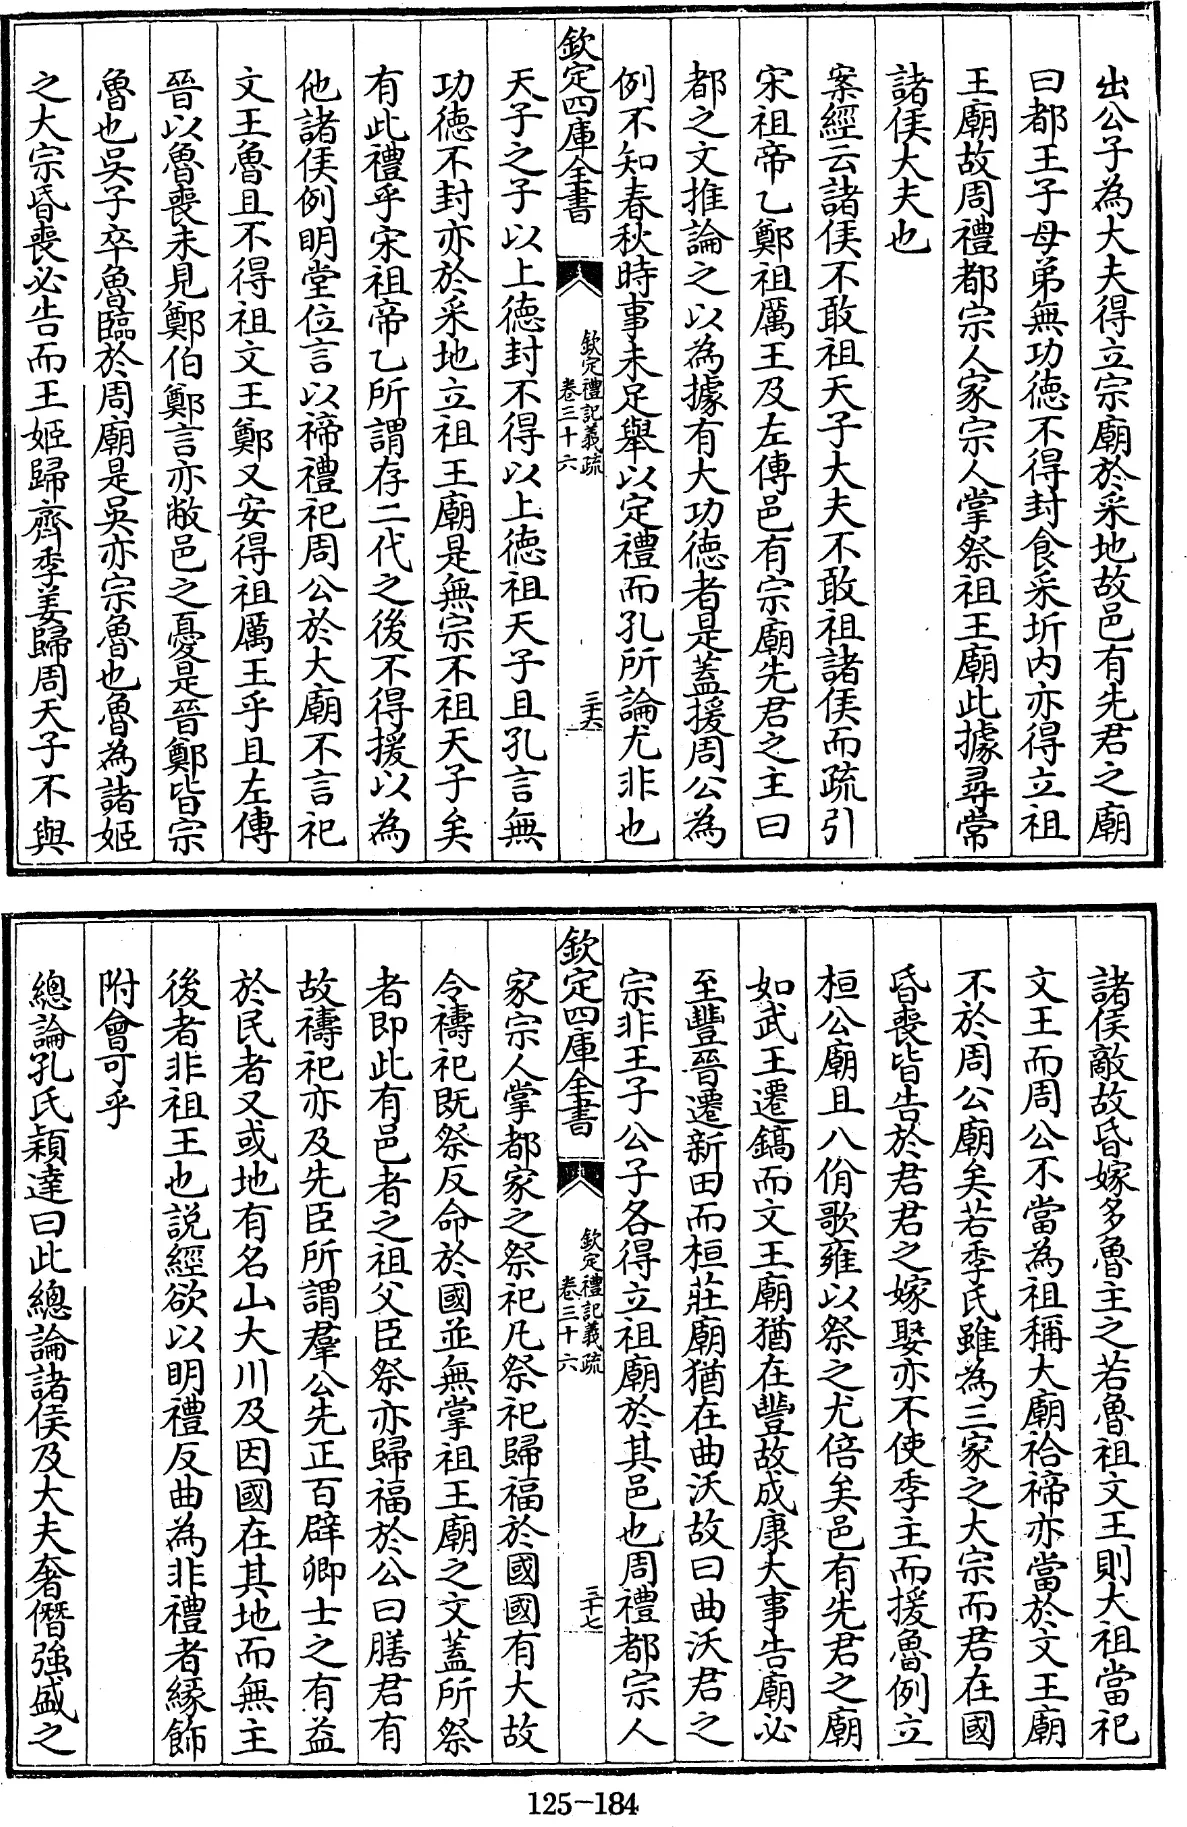 出公子為大夫得立宗廟於采地故邑有先君之廟
曰都王子母弟無功德不得封食采圻内亦得立祖
王廟故周禮都宗人家宗人掌祭祖王廟此據尋常
諸侯大夫也
案經云諸侯不敢祖天子大夫不敢祖諸侯而疏引
宋祖帝乙鄭祖厲王及左傳邑有宗廟先君之主曰
都之文推論之以為據有大功德者是蓋援周公為
例不知春秋時事未足舉以定禮而孔所論尤非也
欽定四庫全書
欽定禮記義疏
卷三十六
三十六
天子之子以上德封不得以上德祖天子且孔言無
功德不封亦於采地立祖王廟是無宗不祖天子矣
有此禮乎宋祖帝乙所謂存二代之後不得援以為
他諸侯例明堂位言以禘禮祀周公於大廟不言祀
文王魯且不得祖文王鄭又安得祖厲王乎且左傳
晉以魯喪未見鄭伯鄭言亦敝邑之憂是晉鄭皆宗
魯也吳子卒魯臨於周廟是吳亦宗魯也魯為諸姬
之大宗昏喪必告而王姬歸齊季姜歸周天子不與
諸侯敵故昏嫁多魯主之若魯祖文王則大祖當祀
文王而周公不當為祖稱大廟祫禘亦當於文王廟
不於周公廟矣若季氏雖為三家之大宗而君在國
昏喪皆告於君君之嫁娶亦不使季主而援魯例立
桓公廟且八佾歌雍以祭之尤倍矣邑有先君之廟
如武王遷鎬而文王廟猶在豐故成康大事告廟必
至豐晉遷新田而桓莊廟猶在曲沃故曰曲沃君之
宗非王子公子各得立祖廟於其邑也周禮都宗人
欽定四庫全書
欽定禮記義疏
卷三十六
三十七
家宗人掌都家之祭祀凡祭祀歸福於國國有大故
令禱祀既祭反命於國並無掌祖王廟之文蓋所祭
者即此有邑者之祖父臣祭亦歸福於公曰膳君有
故禱祀亦及先臣所謂羣公先正百辟卿士之有益
於民者又或地有名山大川及因國在其地而無主
後者非祖王也説經欲以明禮反曲為非禮者緣飾
附會可乎
總論孔氏穎達曰此總論諸侯及大夫奢僭強盛之
125-184